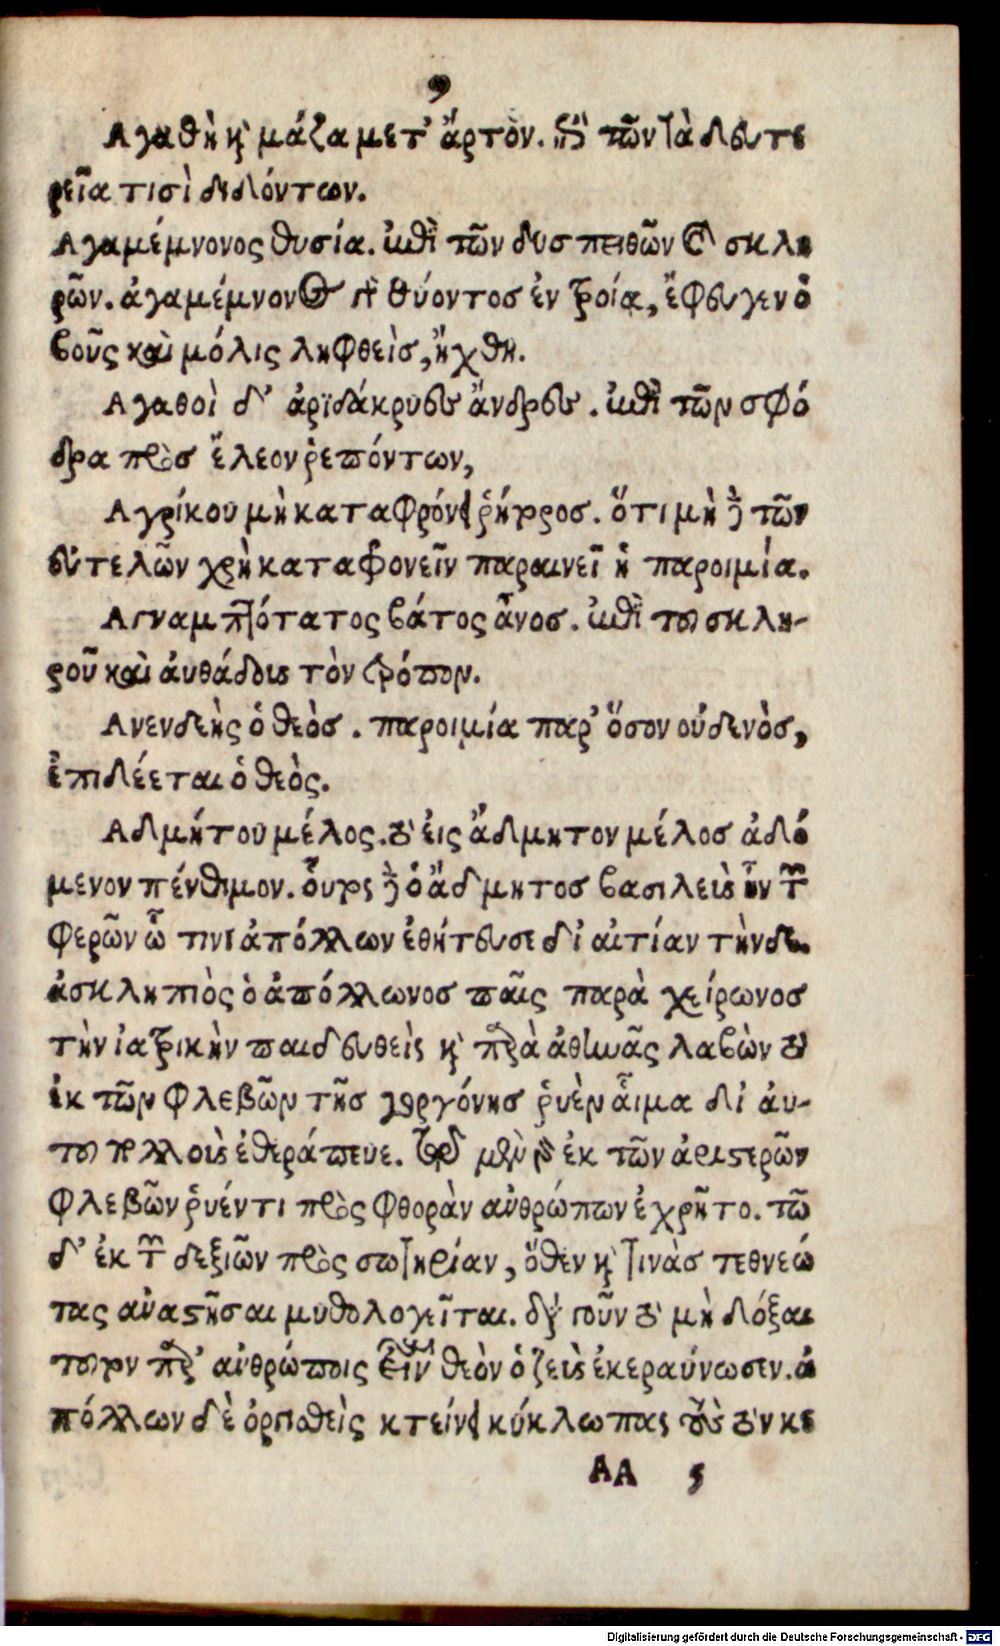 9
Αγαθὴ καὶ μάζα μετ' ἄρτον. ἐπὶ τῶν τὰ δευτε
ρεῖα τισὶ διδόντων.
Αγαμέμνονος θυσία. ἐπὶ τῶν δυσπειθῶν καὶ σκλη
ρῶν. ἀγαμέμνονος γὰρ θύοντοσ ἐν τροία, ἔφευγεν ὁ
βοῦς καὶ μόλις ληφθεὶσ, ἤχθη.
Αγαθοὶ δ' ἀρϊδάκρυες ἄνδρες. ἐπὶ τῶν σφό
δρα πρὸσ ἔλεον ῥεπόντων,
Αγρίκου μὴ καταφρόνει ῥήτροσ. ὅτι μὴ δὲ τῶν
εὐτελῶν χρὴ καταφονεῖν παραινεῖ ἡ παροιμία.
Αγναμπτότατος βάτος ἆνοσ. ἐπὶ τοῦ σκλη-
ροῦ καὶ ἀυθάδους τὸν τρόπον.
Ανενδεὴς ὁ θεὸσ. παροιμία παρ' ὅσον οὐδενὸσ,
ἐπιδέεται ὁ θεὸς.
Αδμήτου μέλος. οὐ εἰς ἄδμητον μέλοσ ἀδό
μενον πένθιμον. οὗτος δὲ ὁ ἄδμητοσ βασιλεὺς ἦν τῶν
φερῶν ὧ τινι ἀπόλλων ἐθήτευσε δι' αἰτίαν τήνδε.
ἀσκληπιὸς ὁ ἀπόλλωνοσ παῖς παρὰ χείρωνοσ
τὴν ἰατρικὴν παιδευθεὶς καὶ παρὰ ἀθηνᾶς λαβὼν
ἐκ τῶν φλεβῶν τῆσ γοργόνησ ῥυὲν αἷμα δι' ἀυ-
τοῦ πολλοὺς ἐθεράπευε. τῷ μὲν γὰρ ἐκ τῶν ἀριστερῶν
φλεβῶν ῥυέντι πρὸς φθορὰν ἀνθρώπων ἐχρῆτο. τῶ
δ' ἐκ τῶν δεξιῶν πρὸς σωτηρίαν, ὅθεν καὶ τινὰσ τεθνεώ
τας ἀναστῆσαι μυθολογεῖται. οὖν μὴ δόξαι
τοῦτον παρ' ἀνθρώποις εἶναι θεὸν ὁ ζεὺς ἐκεραύνωσεν. ὁ
ἀπόλλων δὲ ὀργισθεὶς κτείνει κύκλωπας τοὺς τὸν κε
ΑΑ 5
Digitalisierung gefördert durch die Deutsche Forschungsgemeinschaft - DFG